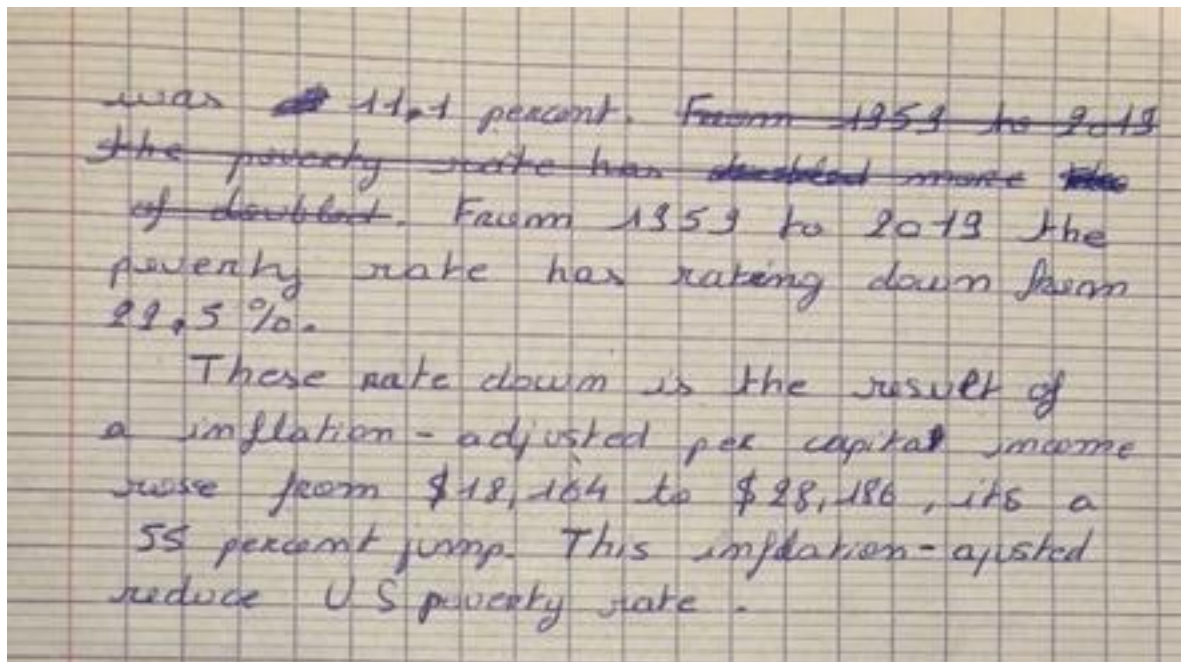 was 11,1 percent. From 1959 to 2019
the poverty rate has doubled more
of doubled. From 1959 to 2019 the
poverty rate has rating down from
22,5 %.
These rate down is the result of
a inflation-adjusted per capital income
rose from $18,164 to $28,186, its a
55 percent jump. This inflation-ajusted
reduce US poverty rate.